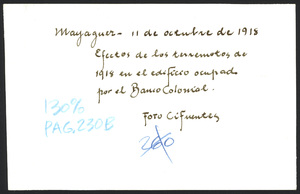 Mayaguez - 11 de octubre de 1918
Efectos de los terremotos de
1918 en el edificio ocupado
por el Banco Colonial.
130%
PAG. 230B
Foto Cifuentes